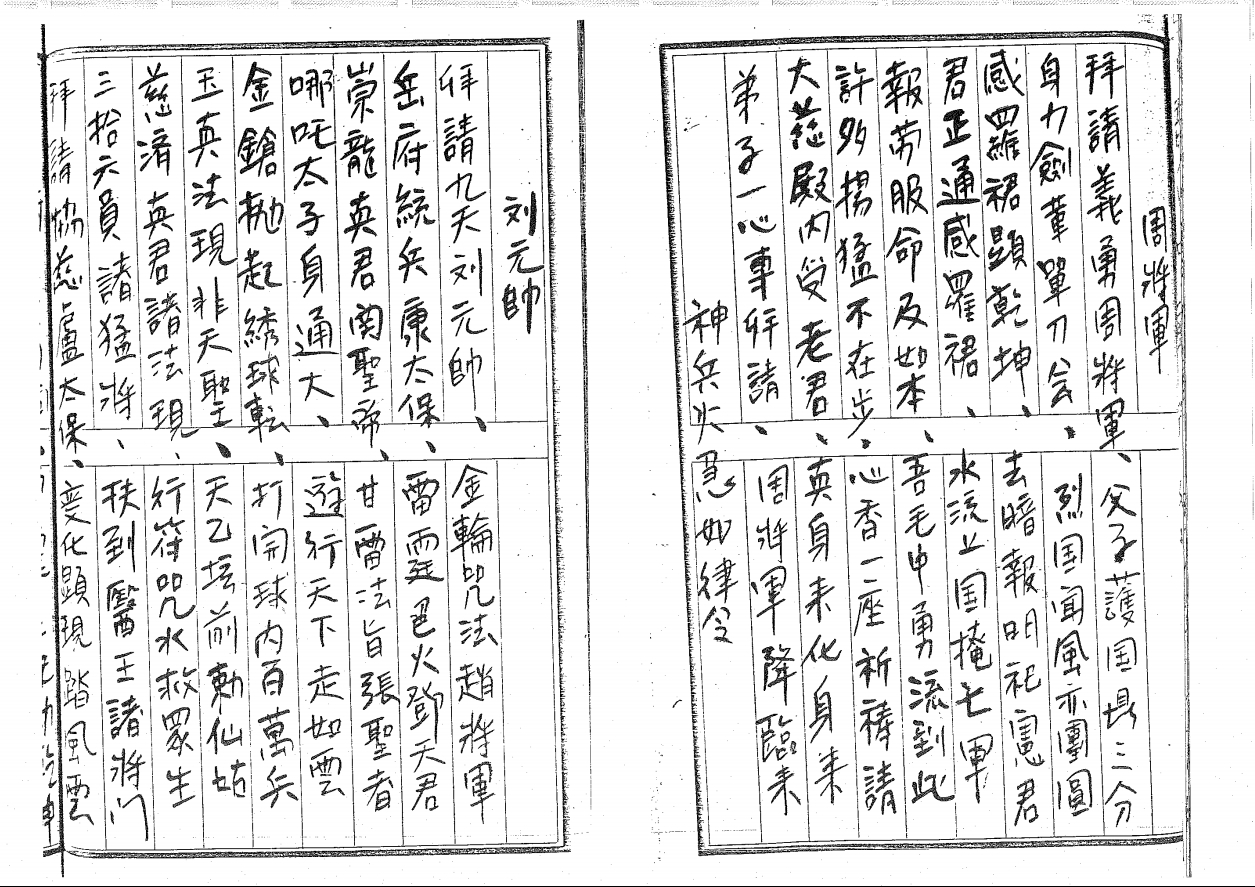 周將軍
拜請義勇周將軍、父子護国鼎三分
身力劍葦單刀会、烈国闻風亦團圓
感四維裙顕乾坤、去暗報明祀憲君
君正通感羅裙、水流上国掩七軍
報劳服命及如本、吾毛申勇流到此
許多揚猛不在步、心香一座祈禱請
大慈殿内受老君、英身来化身来
弟子一心專拜請、周將軍降臨来
神兵火急如律令
刘元帥
拜請九天刘元帥、金輪咒法趙將軍
岳府統兵康太保、雷霆火鄧天君
崇龍英君関聖帝、甘雷法旨張聖者
哪吒太子身通大、遊行天下走如雲
金鎗抛起綉球転、打開球内百萬兵
玉真法現非天聖、天乙坛前勅仙姑
慈濟真君諸法現、行符咒水救眾生
三拾六員諸猛將、扶到醫王諸將门
拜請協慈盧太保、变化顕現踏風雲